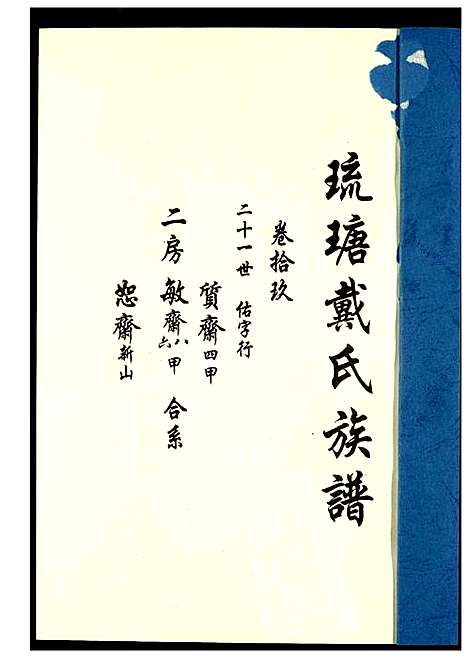 琉瑭戴氏族譜
卷拾玖
二十一世 佑字行
質齋四甲
二房 敏齋八六甲 合系
恕齋新山